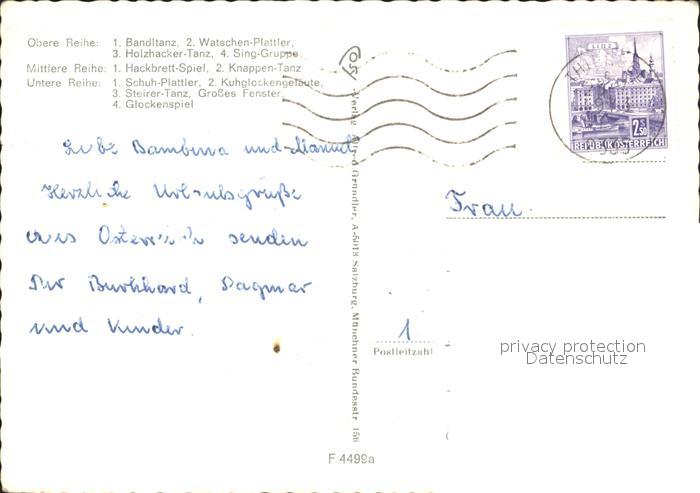 Obere Reihe: 1. Bandltanz, 2. Watschen-Plattler,
3. Holzhacker-Tanz, 4. Sing-Gruppe
Mittlere Reihe: 1. Hackbrett-Spiel, 2. Knappen-Tanz
Untere Reihe: 1. Schuh-Plattler, 2. Kuhglockengeläute,
3. Steirer-Tanz, Großes Fenster,
4. Glockenspiel
Liebe Bambina und
Herzliche Urlaubsgrüße
aus Österreich senden
Dir Burkhard, Dagmar
und Kinder.
Verlag Alfred Gründler, A-5013 Salzburg, Münchner Bundesstr. 156
LINZ
2.50
REPUBLIK ÖSTERREICH
Frau
1
Postleitzahl
privacy protection
Datenschutz
F 4499a